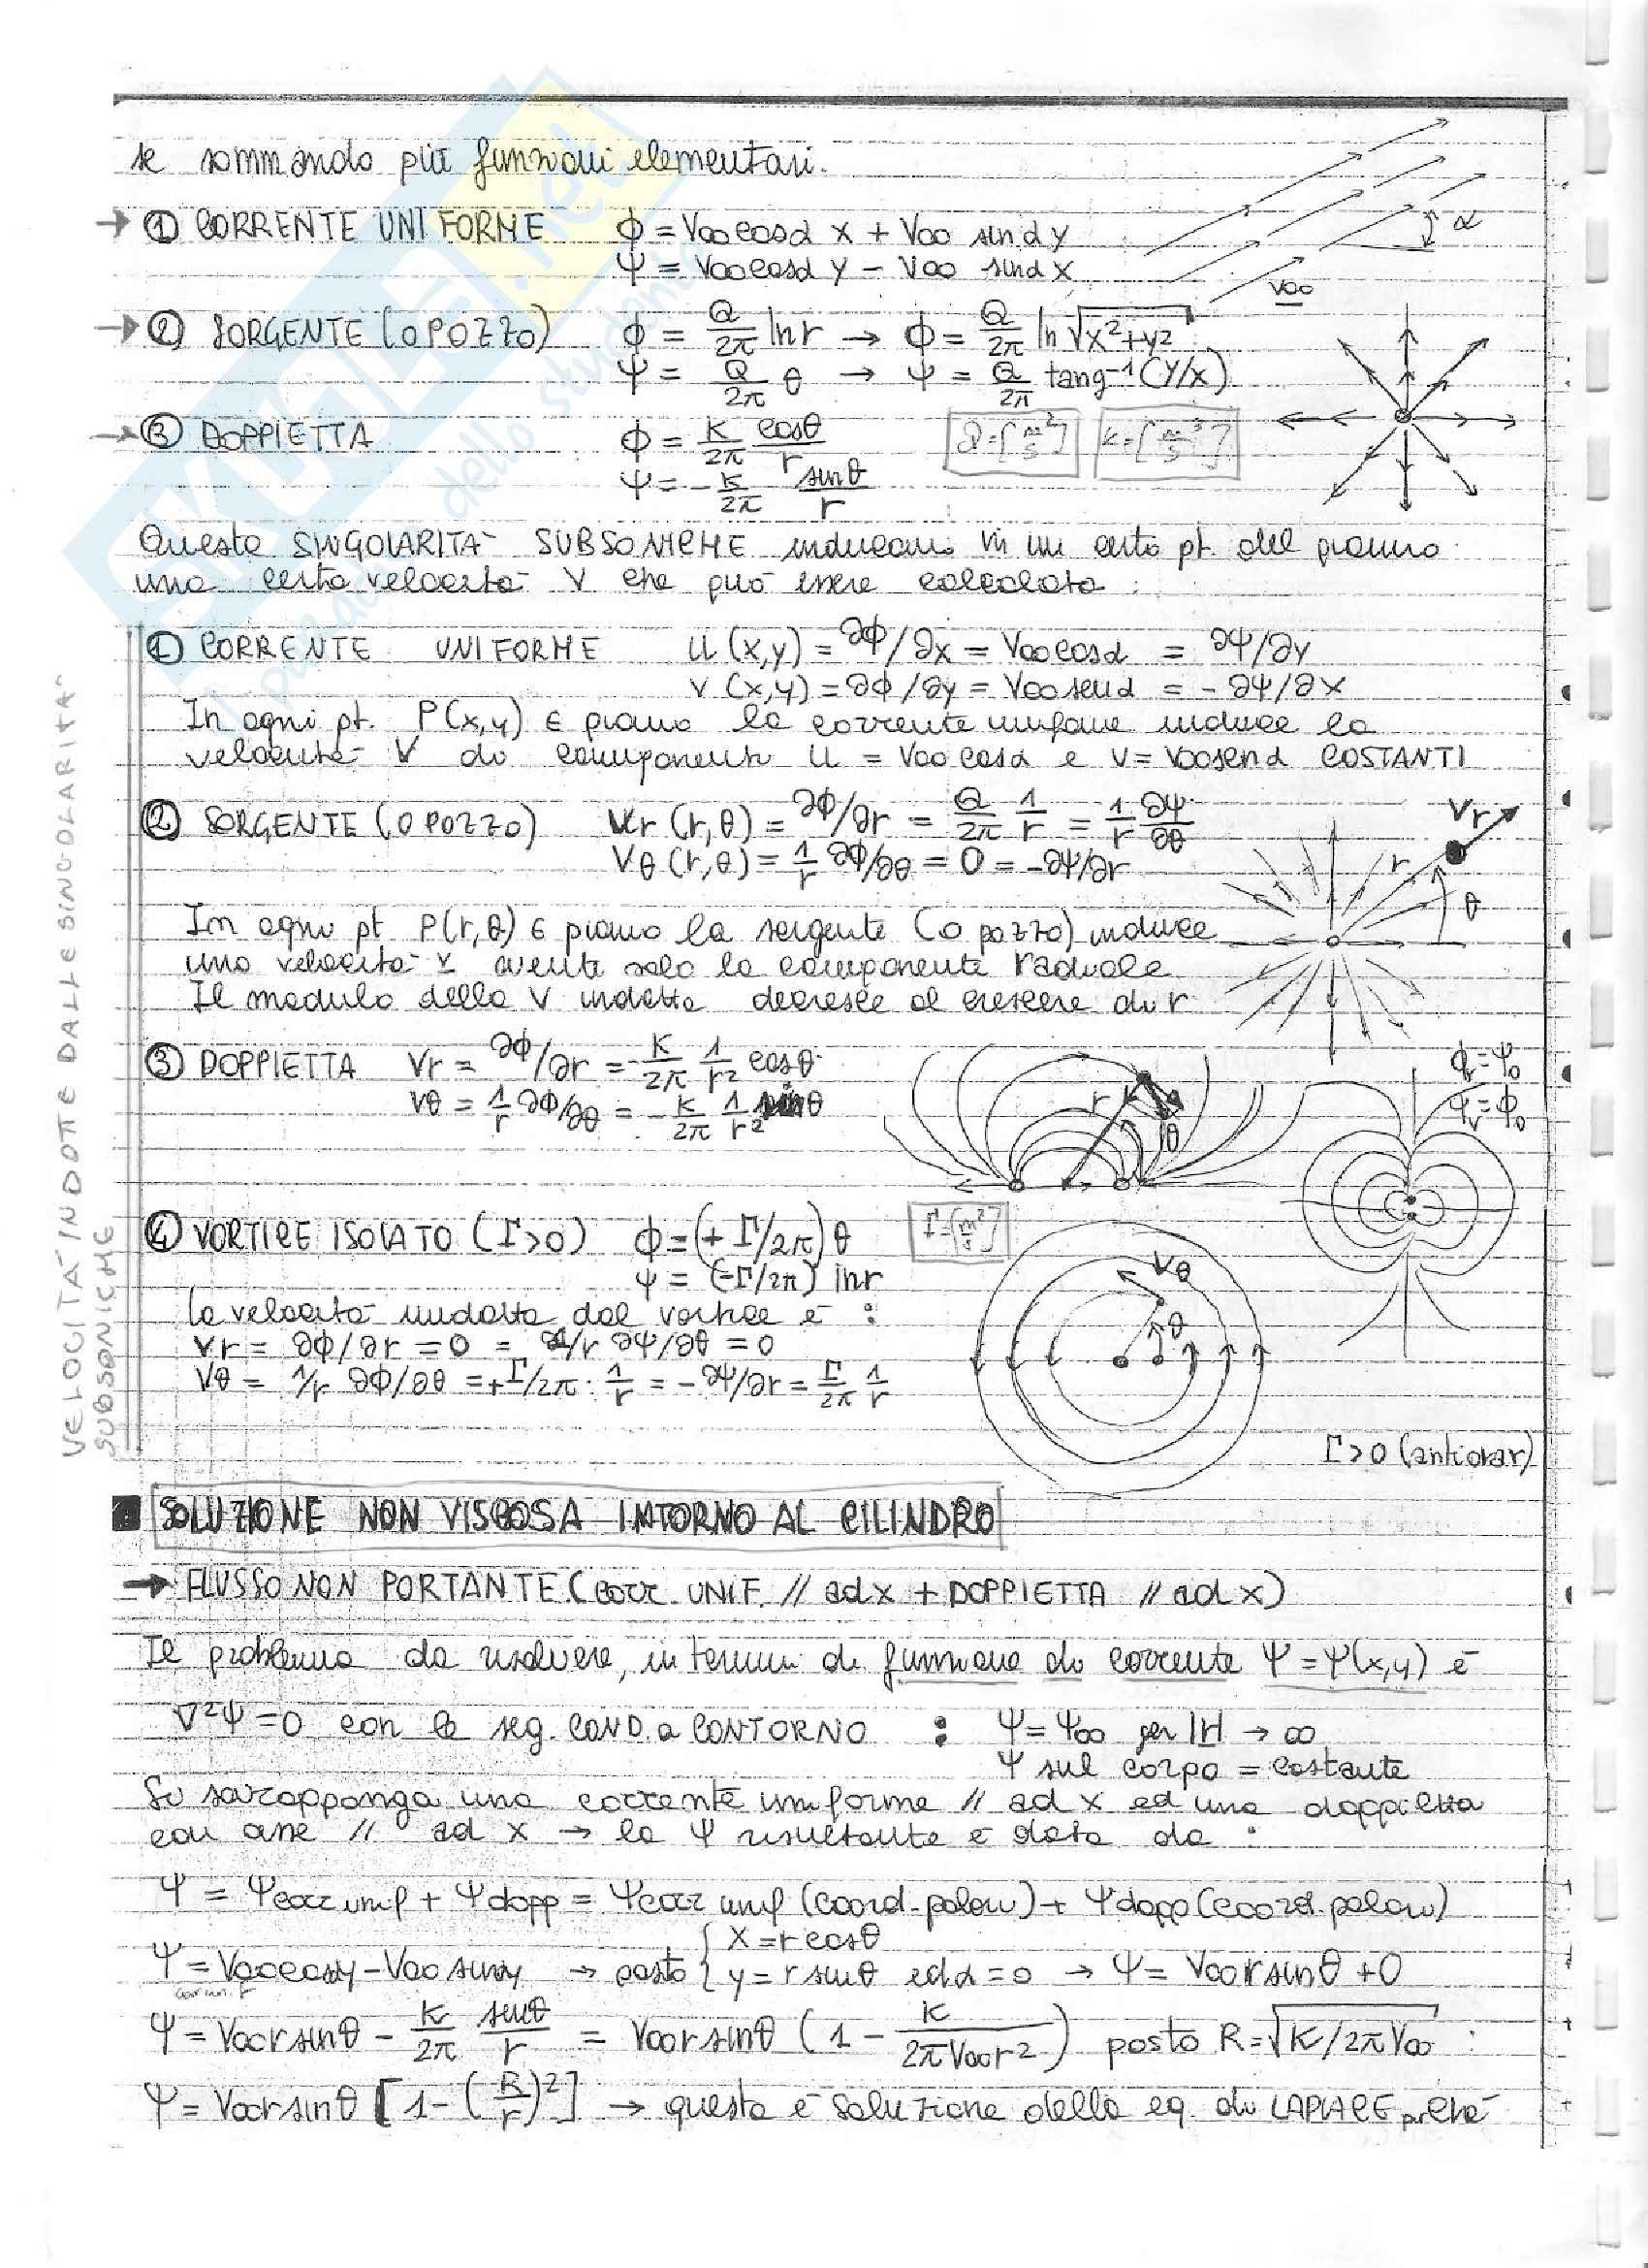 se sommando più funzioni elementari.
→ ① CORRENTE UNIFORME ϕ = V∞ cosα x + V∞ sinα y
Ψ = V∞ cosα y − V∞ sinα x
α
V∞
→ ② SORGENTE (O POZZO) ϕ = Q/2π ln r → ϕ = Q/2π ln √(x²+y²)
Ψ = Q/2π θ → Ψ = Q/2π tang⁻¹(y/x)
→ ③ DOPPIETTA ϕ = K/2π cosθ/r
Q = [m²/s] K = [m³/s]
Ψ = − K/2π sinθ/r
Queste SINGOLARITA' SUBSONICHE inducono in un certo pt. del piano
una certa velocità V che può essere calcolata :
VELOCITA' INDOTTE DALLE SINGOLARITA'
SUBSONICHE
① CORRENTE UNIFORME u (x,y) = ∂ϕ/∂x = V∞ cosα = ∂Ψ/∂y
v (x,y) = ∂ϕ/∂y = V∞ senα = - ∂Ψ/∂x
In ogni pt. P(x,y) ∈ piano la corrente uniforme induce la
velocità V di componenti u = V∞ cosα e v = V∞ senα COSTANTI
② SORGENTE (O POZZO) Vr (r,θ) = ∂ϕ/∂r = Q/2π 1/r = 1/r ∂Ψ/∂θ
Vθ (r,θ) = 1/r ∂ϕ/∂θ = 0 = -∂Ψ/∂r
Vr
r
θ
In ogni pt P(r,θ) ∈ piano la sorgente (o pozzo) induce
una velocità V avente solo la componente radiale
Il modulo della V indotta decresce al crescere di r
③ DOPPIETTA Vr = ∂ϕ/∂r = - K/2π 1/r² cosθ
Vθ = 1/r ∂ϕ/∂θ = - K/2π 1/r² sinθ
r
θ
④ VORTICE ISOLATO (Γ>0) ϕ = (+ Γ/2π) θ
Γ = [m²/s]
Ψ = (-Γ/2π) ln r
la velocità indotta dal vortice è :
Vr = ∂ϕ/∂r = 0 = 1/r ∂Ψ/∂θ = 0
Vθ = 1/r ∂ϕ/∂θ = + Γ/2π · 1/r = - ∂Ψ/∂r = Γ/2π 1/r
Vθ
θ
Γ>0 (antiorar)
SOLUZIONE NON VISCOSA INTORNO AL CILINDRO
→ FLUSSO NON PORTANTE (corr. UNIF. // ad x + DOPPIETTA // ad x)
Il problema da risolvere, in termini di funzione di corrente Ψ = Ψ(x,y) è
∇²Ψ = 0 con le seg. COND. a CONTORNO : Ψ = Ψ∞ per |r| → ∞
Ψ sul corpo = costante
Si sovrapponga una corrente uniforme // ad x ed una doppietta
con asse // ad x → la Ψ risultante è data da :
Ψ = Ψcorr unif + Ψdopp = Ψcorr unif (coord. polari) + Ψdopp (coord. polari)
Ψ = V∞ cosαy − V∞ sinαy → posto { x = r cosθ
corr un. f
y = r sinθ ed α = 0 → Ψ = V∞ r sinθ + 0
Ψ = V∞ r sinθ − K/2π sinθ/r = V∞ r sinθ ( 1 − K/2πV∞r² ) posto R = √(K/2πV∞) :
Ψ = V∞ r sinθ [ 1 − (R/r)² ] → questa è soluzione della eq. di LAPLACE perché